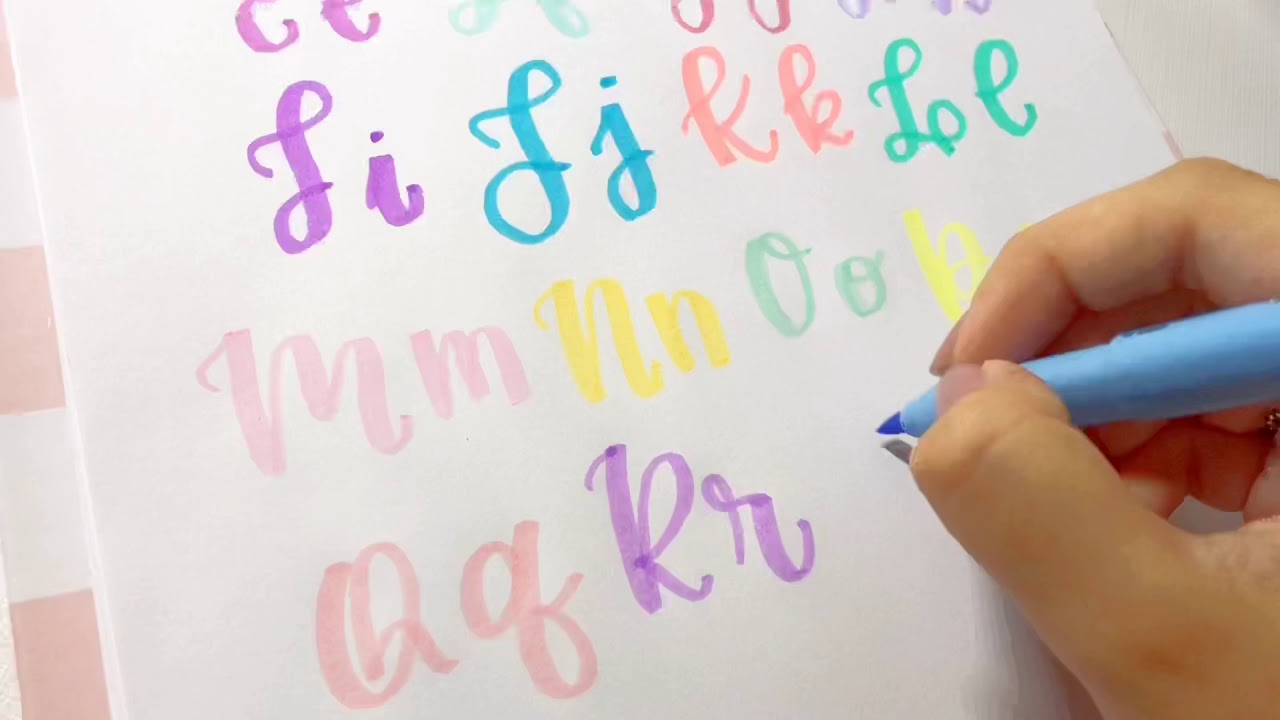 Ii Jj Kk Ll
Mm Nn Oo
Qq Rr